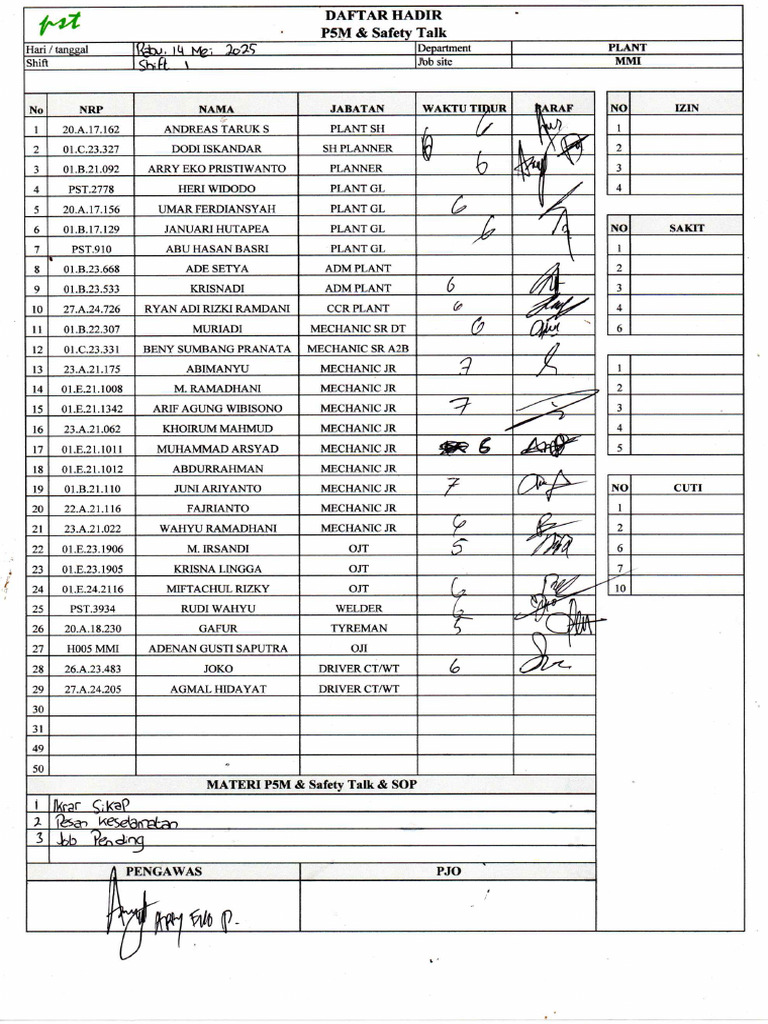 pst
DAFTAR HADIR
P5M & Safety Talk
Hari / tanggal Rabu. 14 Mei 2025 Department PLANT
Shift Shift 1 Job site MMI
No NRP NAMA JABATAN WAKTU TIDUR PARAF
1 20.A.17.162 ANDREAS TARUK S PLANT SH 6
2 01.C.23.327 DODI ISKANDAR SH PLANNER 6
3 01.B.21.092 ARRY EKO PRISTIWANTO PLANNER 6
4 PST.2778 HERI WIDODO PLANT GL
5 20.A.17.156 UMAR FERDIANSYAH PLANT GL 6
6 01.B.17.129 JANUARI HUTAPEA PLANT GL 6
7 PST.910 ABU HASAN BASRI PLANT GL
8 01.B.23.668 ADE SETYA ADM PLANT
9 01.B.23.533 KRISNADI ADM PLANT 6
10 27.A.24.726 RYAN ADI RIZKI RAMDANI CCR PLANT 6
11 01.B.22.307 MURIADI MECHANIC SR DT 6
12 01.C.23.331 BENY SUMBANG PRANATA MECHANIC SR A2B
13 23.A.21.175 ABIMANYU MECHANIC JR 7
14 01.E.21.1008 M. RAMADHANI MECHANIC JR
15 01.E.21.1342 ARIF AGUNG WIBISONO MECHANIC JR 7
16 23.A.21.062 KHOIRUM MAHMUD MECHANIC JR
17 01.E.21.1011 MUHAMMAD ARSYAD MECHANIC JR 6
18 01.E.21.1012 ABDURRAHMAN MECHANIC JR
19 01.B.21.110 JUNI ARIYANTO MECHANIC JR 7
20 22.A.21.116 FAJRIANTO MECHANIC JR
21 23.A.21.022 WAHYU RAMADHANI MECHANIC JR 6
22 01.E.23.1906 M. IRSANDI OJT 5
23 01.E.23.1905 KRISNA LINGGA OJT
24 01.E.24.2116 MIFTACHUL RIZKY OJT 6
25 PST.3934 RUDI WAHYU WELDER 6
26 20.A.18.230 GAFUR TYREMAN 5
27 H005 MMI ADENAN GUSTI SAPUTRA OJI
28 26.A.23.483 JOKO DRIVER CT/WT 6
29 27.A.24.205 AGMAL HIDAYAT DRIVER CT/WT
30
31
49
50
MATERI P5M & Safety Talk & SOP
1 Ikrar Sikap
2 Pesan Keselamatan
3 Job Pending
PENGAWAS PJO
Arry Eko P.
NO IZIN
1
2
3
4
NO SAKIT
1
2
3
4
6
1
2
3
4
5
NO CUTI
1
2
6
7
10